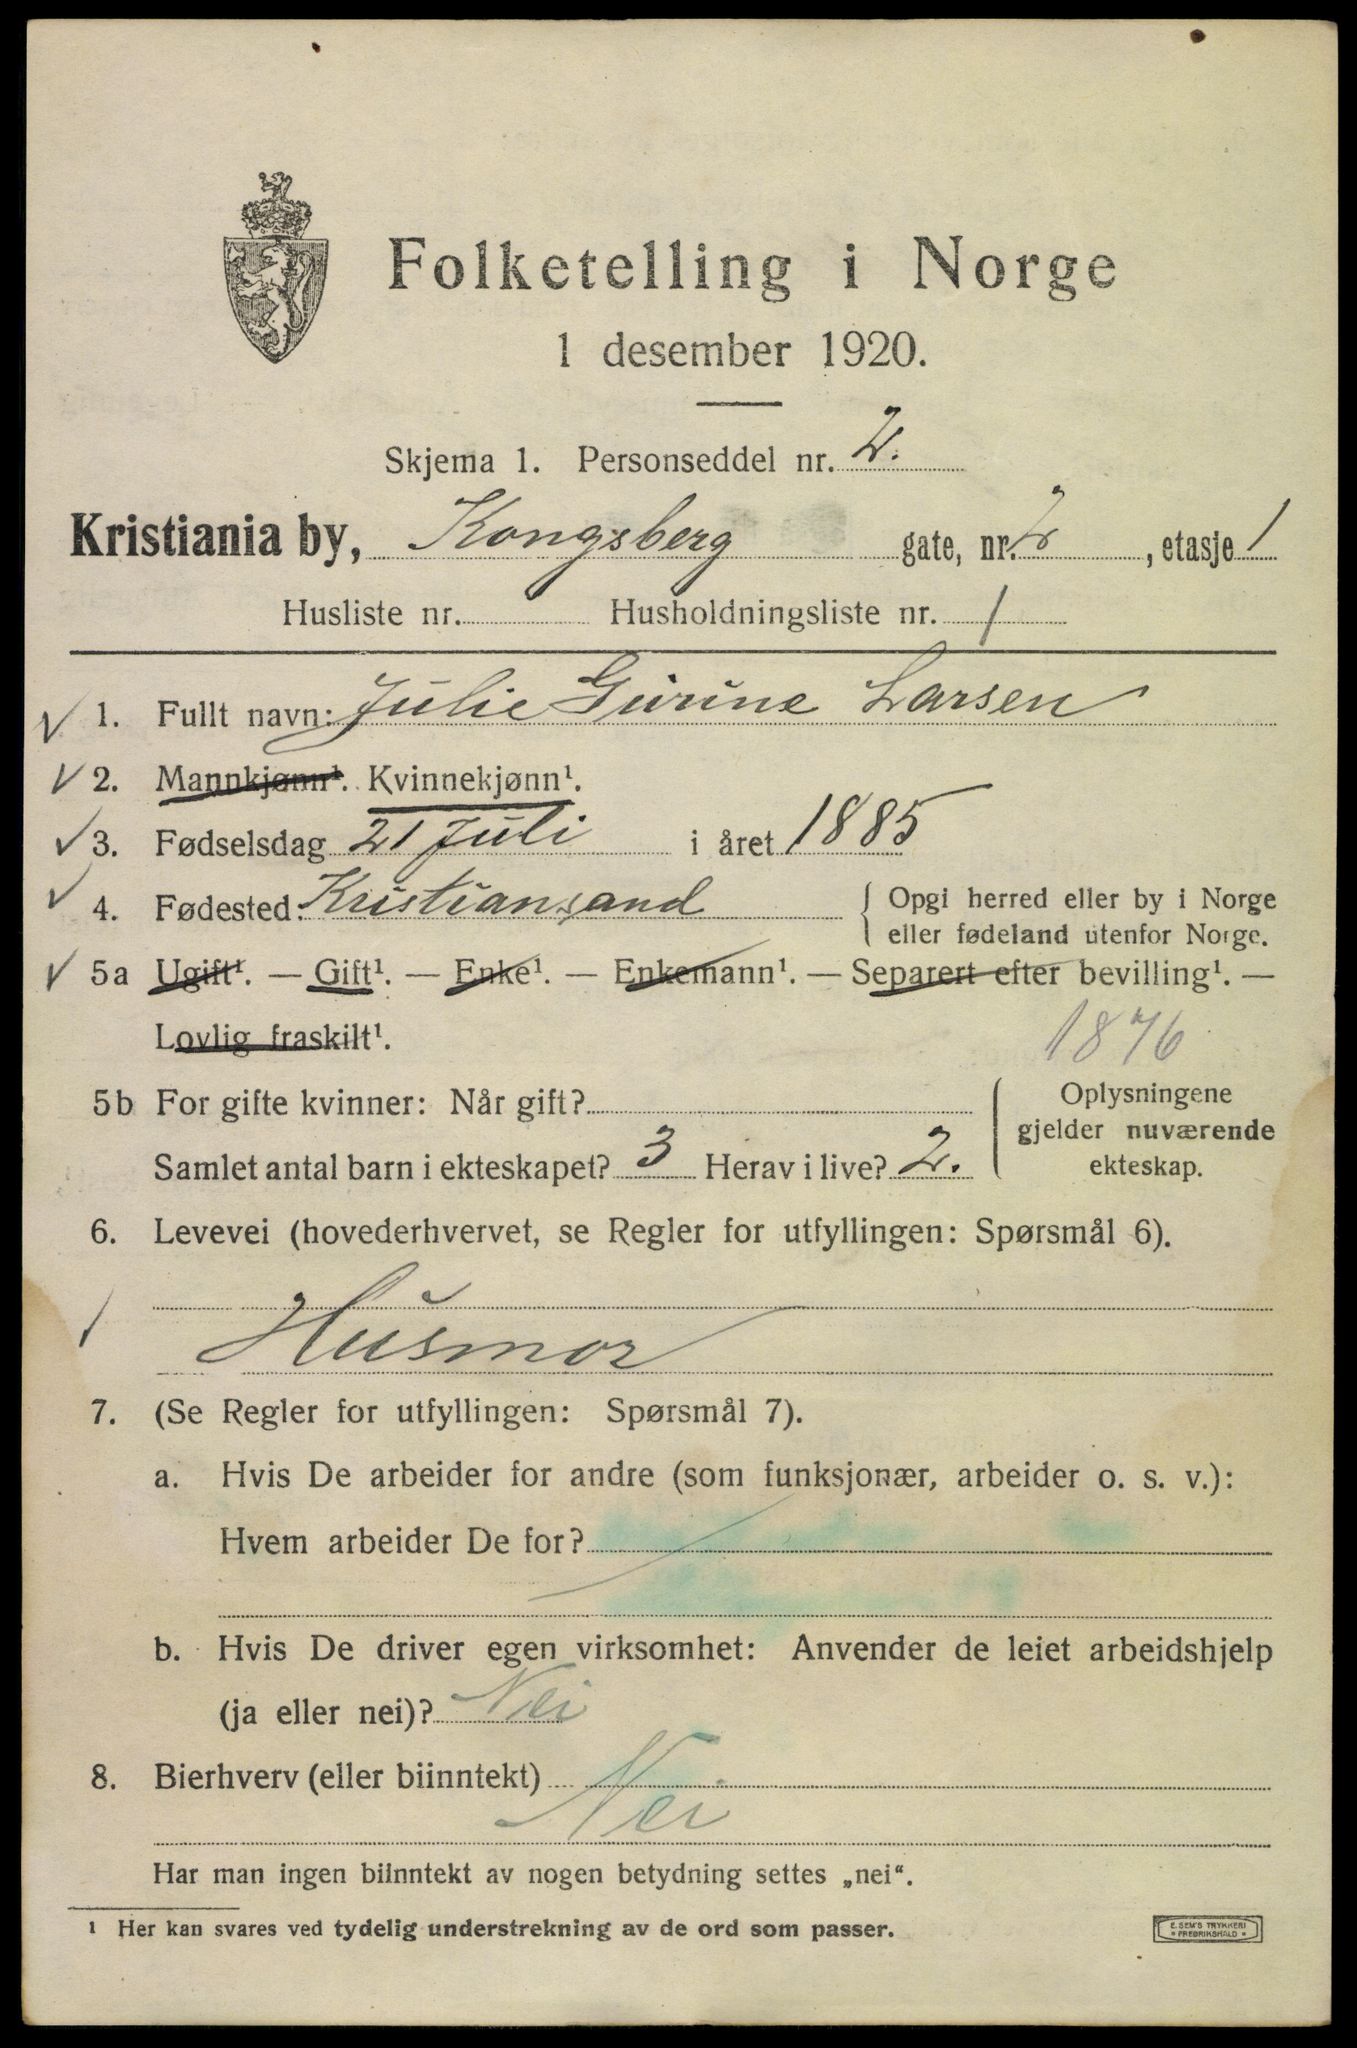 Folketelling i Norge
1 desember 1920.
Skjema 1. Personseddel nr. 2.
Kristiania by, Kongsberg gate, nr. 2, etasje 1
Husliste nr. Husholdningsliste nr. 1
1. Fullt navn: Julie Gurine Larsen
2. Mannkjønn¹. Kvinnekjønn¹.
3. Fødselsdag 21 Juli i året 1885
4. Fødested: Kristiansand { Opgi herred eller by i Norge
eller fødeland utenfor Norge.
5a Ugift¹. — Gift¹. — Enke¹. — Enkemann¹. — Separert efter bevilling¹. —
Lovlig fraskilt¹.
1876
5b For gifte kvinner: Når gift?
Samlet antal barn i ekteskapet? 3 Herav i live? 2.
Oplysningene
gjelder nuværende
ekteskap.
6. Levevei (hovederhvervet, se Regler for utfyllingen: Spørsmål 6).
Husmor
7. (Se Regler for utfyllingen: Spørsmål 7).
a. Hvis De arbeider for andre (som funksjonær, arbeider o. s. v.):
Hvem arbeider De for?
b. Hvis De driver egen virksomhet: Anvender de leiet arbeidshjelp
(ja eller nei)? Nei
8. Bierhverv (eller biinntekt)
Nei
Har man ingen biinntekt av nogen betydning settes „nei“.
¹ Her kan svares ved tydelig understrekning av de ord som passer.
E. SEM'S TRYKKERI
* FREDRIKSHALD *